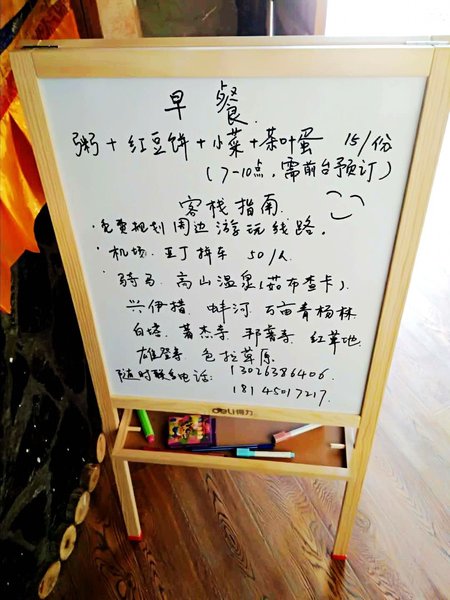 早 餐
粥+红豆饼+小菜+茶叶蛋 15/份
(7-10点,需前台预订)
客栈指南
·免费规划周边游玩线路.
·机场.亚丁拼车 50/人
·骑马.高山温泉(茹布查卡)
兴伊措 蚌河 万亩青杨林
白塔.著杰寺.邦普寺 红草地
雄登寺.色拉草原
随时联系电话: 13026386406.
18145017217.
deli得力